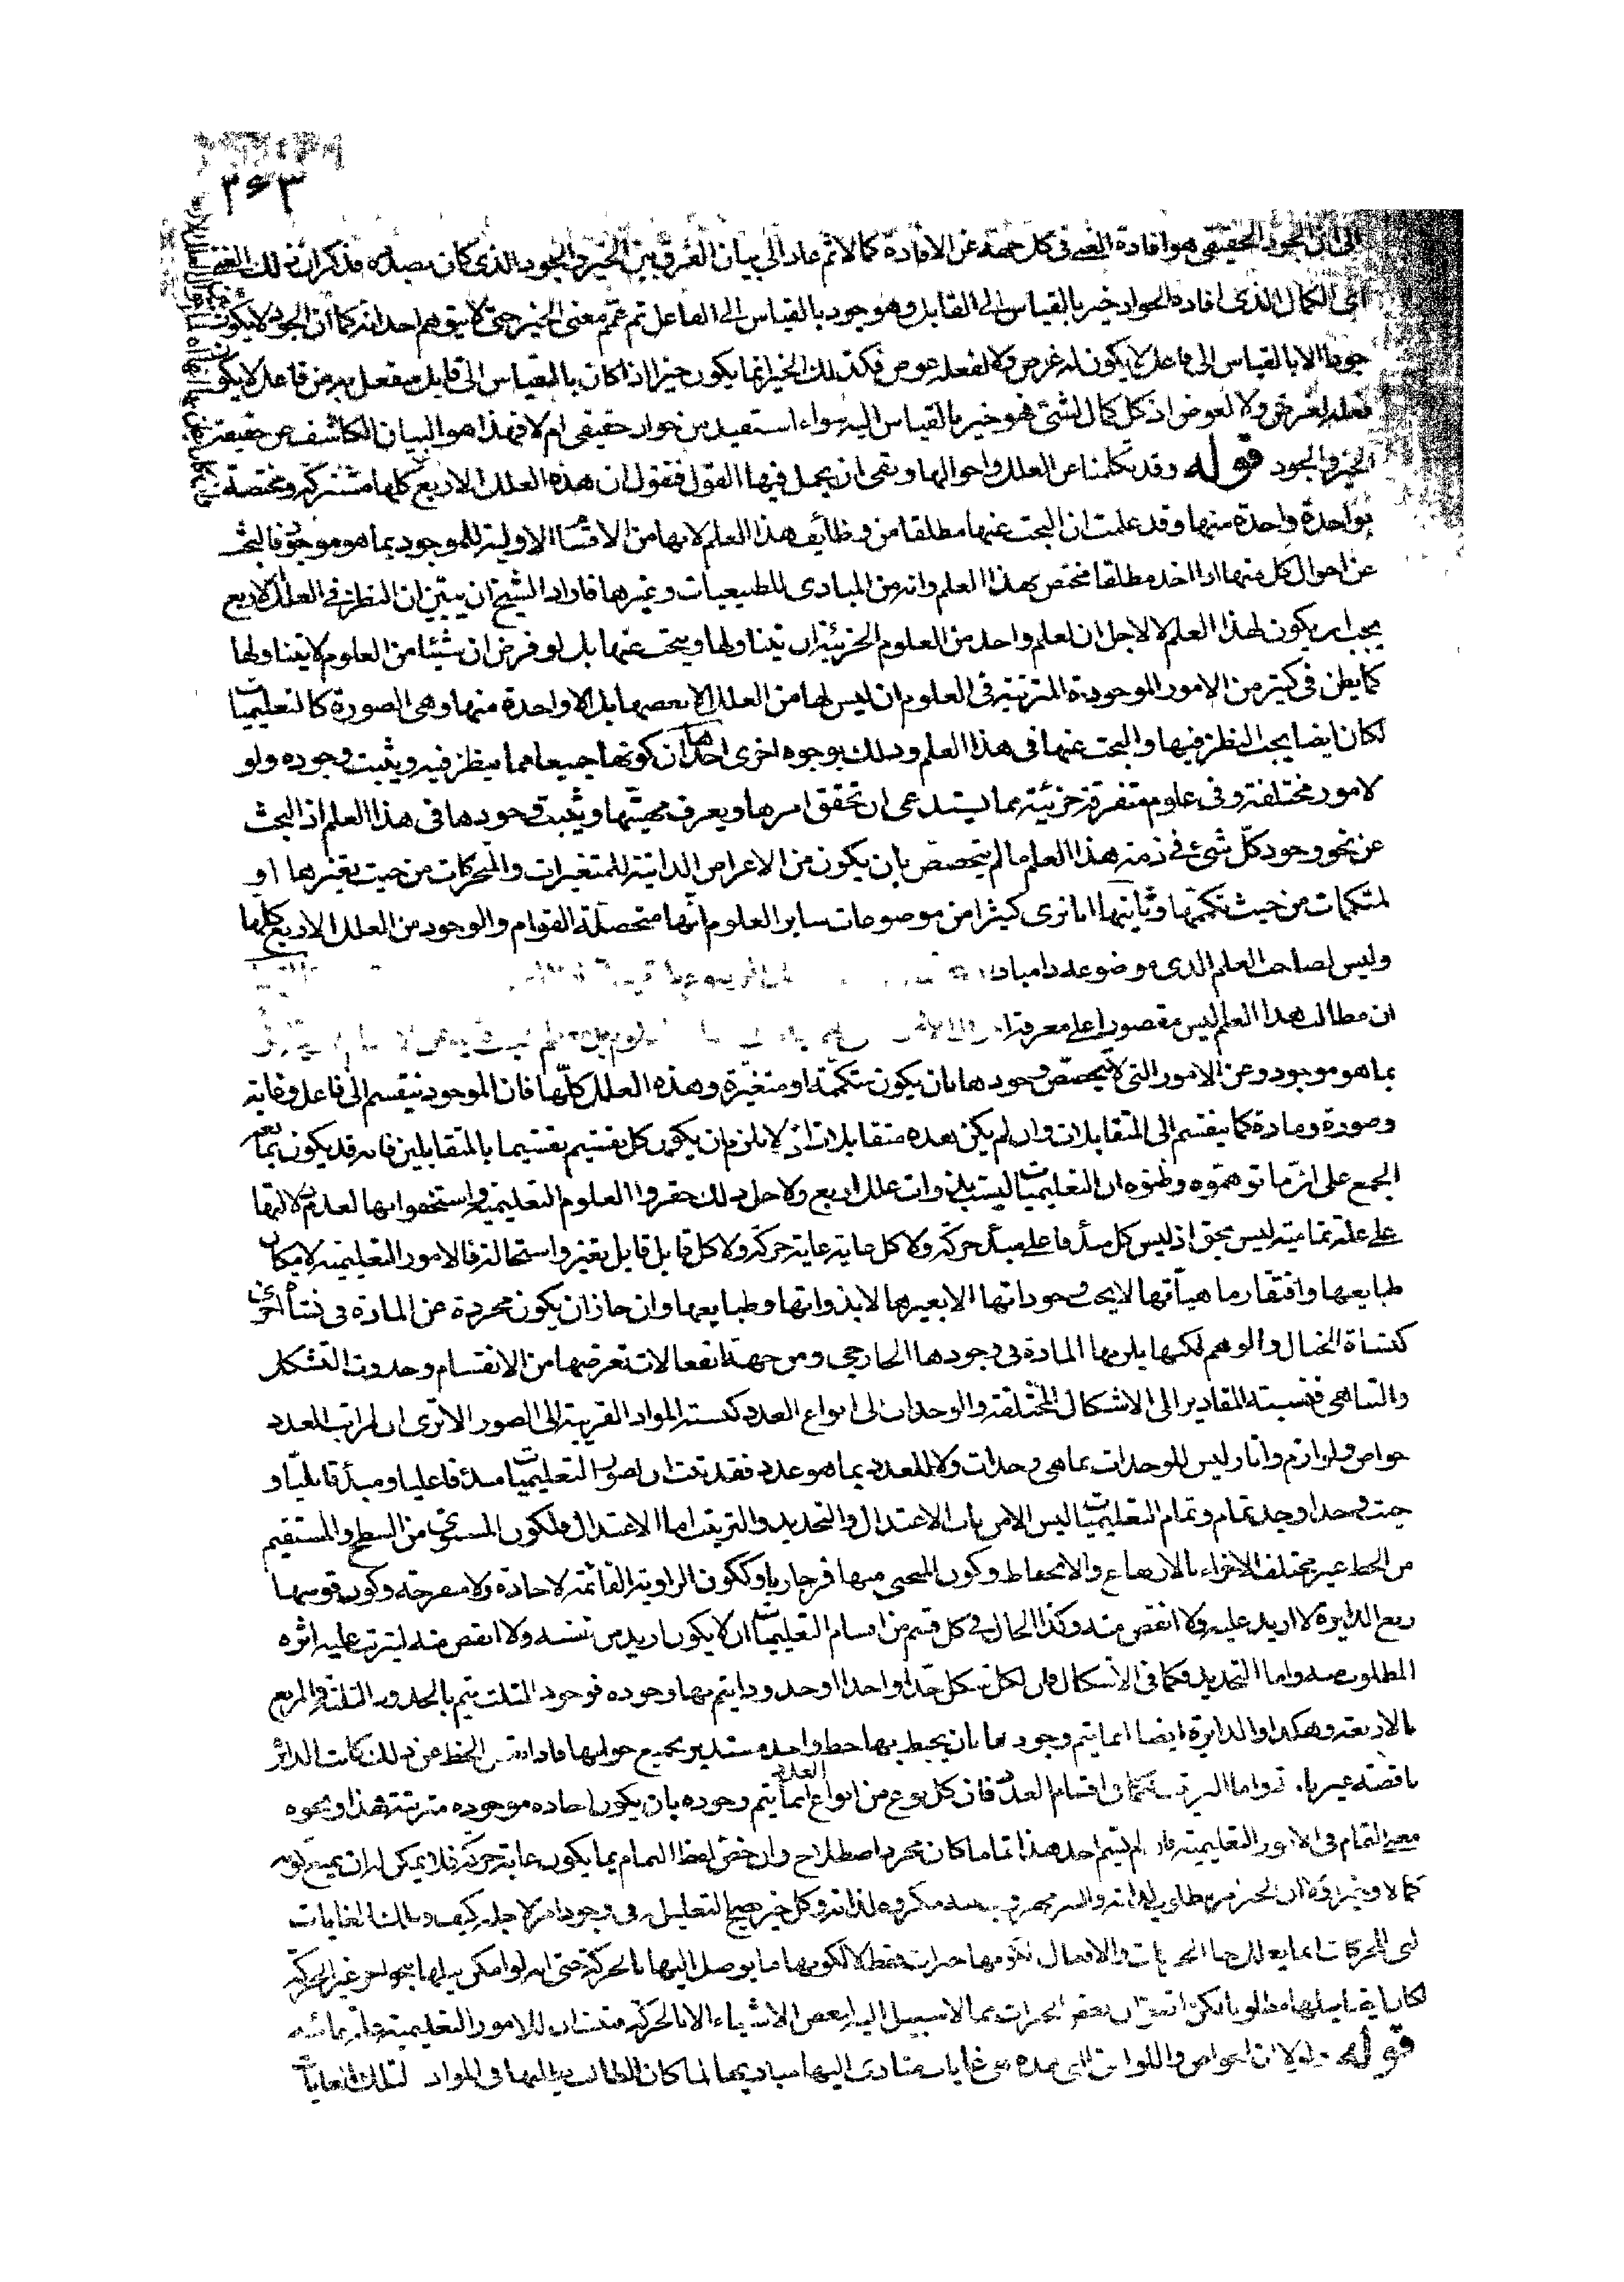 ٢٤٣
الى ان الجود الحقيقى هو افادة الغير فى كل جهة عن الافادة كما لا ثم عاد الى بيان الفرق بين الخير والجود الذى كان بصدده فذكر ان ذلك الفعل
اى الكمال الذى افاده الجواد خير بالقياس الى القابل وهو جود بالقياس الى الفاعل ثم عمم معنى الخير حتى لا يتوهم احد انه كما ان الجود لا يكون
جودا الا بالقياس الى فاعل لا يكون له غرض ولا لفعله عوض فكذلك الخير انما يكون خيرا اذا كان بالقياس الى قابل منفعل به من فاعل لا يكون
فعله لغرض ولا لعوض اذ كل كمال لشئ فهو خير بالقياس اليه سواء استفيد من جواد حقيقى ام لا فهذا هو البيان الكاشف عن حقيقة
الخير والجود قوله وقد تكلمنا عن العلل واحوالها وبقى ان يجمل فيها القول فنقول ان هذه العلل الاربع كلها مشتركة ومختصة
بواحدة واحدة منها وقد علمت ان البحث عنها مطلقا من وظائف هذا العلم لانها من الاقسام الاولية للموجود بما هو موجود فالبحث
عن احوال كل منها اذا اخذ مطلقا مختص بهذا العلم وانه من المبادى للطبيعيات وغيرها فاراد الشيخ ان يبين ان النظر فى العلل الاربع
يجب ان يكون لهذا العلم لا لاجل ان لعلم واحد من العلوم الجزئية ان يتناولها ويبحث عنها بل لو فرض ان شيئا من العلوم لا يتناولها
كما يظن فى كثير من الامور الموجودة المترتبة فى العلوم ان ليس لها من العلل الا بعضها بل الا واحدة منها وهى الصورة كالتعليميات
لكان ايضا يجب النظر فيها والبحث عنها فى هذا العلم وذلك بوجوه اخرى احدها ان كونها جميعا مما ينظر فيه ويثبت وجوده ولو
لامور مختلفة وفى علوم متفرقة جزئية مما يستدعى ان تحقق امرها ويعرف مهيتها ويثبت وجودها فى هذا العلم اذ البحث
عن نحو وجود كل شئ فى ذمة هذا العلم ما لم يتخصص بان يكون من الاعراض الذاتية للمتغيرات والمتحركات من حيث تغيرها او
لمتكممات من حيث تكممها وثانيها انا نرى كثيرا من موضوعات ساير العلوم انها متحصلة القوام والوجود من العلل الاربع كلها
وليس لصاحب العلم الذى موضوعه ذا مباد
ان مطالب هذا العلم ليس مقصورا على معرفة
بما هو موجود وعن الامور التى لا يتخصص وجودها بان يكون متكممة او متغيرة وهذه العلل كلها فان الموجود ينقسم الى فاعل وغاية
وصورة ومادة كما ينقسم الى المتقابلات وان لم يكن هذه متقابلات اذ لا يلزم ان يكون كل تقسيم تقسيما بالمتقابلين فانه قد يكون بما
الجمع على ان ما توهموه وظنوه ان التعليميات ليست بذوات علل اربع ولاجل ذلك حقروا العلوم التعليمية واستخفوا بها لعدم دلالتها
على علة تمامية ليس بحق اذ ليس كل مبدأ فاعلى مبدأ حركة ولا كل غاية غاية حركة ولا كل قابل قابل تغير واستحالة فالامور التعليمية لامكان
طبايعها وافتقار ماهياتها لا يجب وجوداتها الا بغيرها لا بذواتها وطبايعها وان جاز ان يكون مجردة عن المادة فى نشأة اخرى
كنشاة الخيال والوهم لكنها يلزمها المادة فى وجودها الخارجى ومن جهة انفعالات تعرضها من الانقسام وحدوث التشكل
والتناهى فنسبته المقادير الى الاشكال المختلفة والوحدات الى انواع العدد كنسبة المواد القريبة الى الصور الا ترى ان لمراتب العدد
خواص ولوازم واثار ليس للوحدات بما هى وحدات ولا للعدد بما هو عدد فقد ثبت ان لصور التعليميات مبدأ فاعليا ومبدأ قابليا و
حيث وجدا وجد تمام وتمام التعليميات ليس الا من باب الاعتدال والتحديد والترتيب اما الاعتدال فلكون المستوى من السطح والمستقيم
من الخط غير مختلف الاجزاء بالارتفاع والانخفاط وكون المنحنى منها فرجاريا وككون الزاوية القائمة لا حادة ولا منفرجة وكون قوسها
ربع الدايرة لا ازيد عليه ولا انقص منه وكذا الحال فى كل قسم من اقسام التعليميات ان لا يكون ازيد من نفسه ولا انقص منه ليترتب عليه اثره
المطلوب منه واما التحديد فكما فى الاشكال فان لكل شكل حدا واحدا او حدودا يتم بها وجوده فوجود المثلث يتم بالحدود الثلثة والمربع
بالاربعة وهكذا والدايرة ايضا انما يتم وجودها بان يحيط بها خط واحد مستدير بجميع حولها فاذا نقص الخط عن ذلك كانت الدائرة
ناقصة واما الترتيب فكما فى اقسام العدد فان كل نوع من انواع العدد انما يتم وجوده بان يكون احاده موجوده مترتبة هذا ونحوه
معنى التمام فى الامور التعليمية فان لم يتم احد هذا تماما كان مجرد اصطلاح وان خص لفظ التمام بما يكون غاية حركة فلا يمكن له ان يمنع كونه
كمالا وخيرا ان الخير مطلوب لذاته والشر مهروب عنه مكروه لذاته وكل خير يصح التعليل فى وجود امر لاجله كيف وتلك الغايات
التى للحركات انما يعلل بها الحركات والافعال لكونها خيرات فقط لا لكونها ما يوصل اليها بالحركة حتى انه لو امكن نيلها بنحو اخر غير الحركة
لكان ايضا نيلها مطلوبا لكن اتفق ان بعض الخيرات مما لا سبيل اليه لبعض الاشياء الا بالحركة فثبت ان للامور التعليمية علة تمامية
قوله ولولا ان الخواص واللواحق التى هذه هى غايات يتأدى اليها مباديها لما كان الطالب يطلبها فى المواد لتلك الغايات